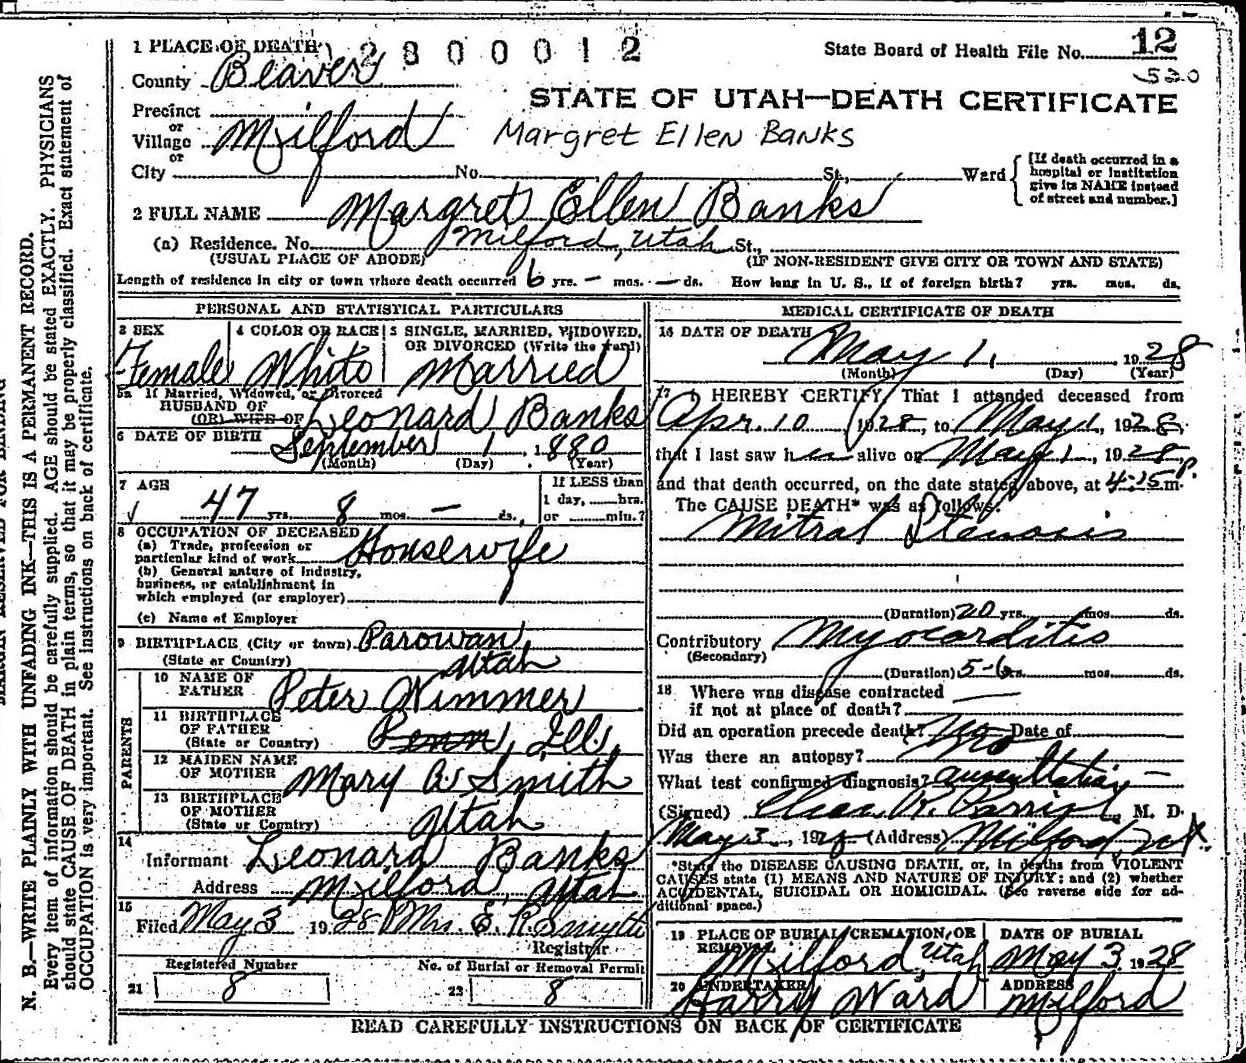 1 PLACE OF DEATH 2800012 State Board of Health File No. 12
County Beaver 530
STATE OF UTAH—DEATH CERTIFICATE
Precinct
or
Village Milford Margret Ellen Banks
or
City No. St., Ward
[If death occurred in a hospital or institution give its NAME instead of street and number.]
2 FULL NAME Margret Ellen Banks
(a) Residence. No. Milford, Utah St.,
(USUAL PLACE OF ABODE) (IF NON-RESIDENT GIVE CITY OR TOWN AND STATE)
Length of residence in city or town where death occurred 6 yrs. — mos. — ds. How long in U. S., if of foreign birth? yrs. mos. ds.
PERSONAL AND STATISTICAL PARTICULARS
3 SEX 4 COLOR OR RACE 5 SINGLE, MARRIED, WIDOWED, OR DIVORCED (Write the word)
Female White Married
5a If Married, Widowed, or Divorced
HUSBAND OF
(OR) WIFE OF Leonard Banks
6 DATE OF BIRTH September 1, 1880
(Month) (Day) (Year)
7 AGE If LESS than
47 yrs. 8 mos. — ds. 1 day, hrs.
or min.?
8 OCCUPATION OF DECEASED
(a) Trade, profession or
particular kind of work Housewife
(b) General nature of Industry,
business, or establishment in
which employed (or employer)
(c) Name of Employer
9 BIRTHPLACE (City or town) Parowan,
(State or Country) Utah
PARENTS
10 NAME OF
FATHER Peter Wimmer
11 BIRTHPLACE
OF FATHER
(State or Country) Penn, Ill.
12 MAIDEN NAME
OF MOTHER Mary A. Smith
13 BIRTHPLACE
OF MOTHER
(State or Country) Utah
14
Informant Leonard Banks
Address Milford, Utah
15
Filed May 3 1928 Mrs. E. R. Smyth
Registrar
Registered Number No. of Burial or Removal Permit
21 8 22 8
MEDICAL CERTIFICATE OF DEATH
16 DATE OF DEATH
May 1, 1928
(Month) (Day) (Year)
17 I HEREBY CERTIFY, That I attended deceased from
Apr. 10 1928, to May 1, 1928,
that I last saw her alive on May 1, 1928,
and that death occurred, on the date stated above, at 4:15 P.m.
The CAUSE DEATH* was as follows:
Mitral Stenosis
(Duration) 20 yrs. mos. ds.
Contributory Myocarditis
(Secondary)
(Duration) 5-6 yrs. mos. ds.
18 Where was disease contracted
if not at place of death?
Did an operation precede death? No Date of
Was there an autopsy?
What test confirmed diagnosis? auscultation —
(Signed) Chas. R. Parrish, M. D.
May 3, 1928 (Address) Milford Ut.
*State the DISEASE CAUSING DEATH, or, in deaths from VIOLENT
CAUSES state (1) MEANS AND NATURE OF INJURY; and (2) whether
ACCIDENTAL, SUICIDAL OR HOMICIDAL. (See reverse side for ad-
ditional space.)
19 PLACE OF BURIAL, CREMATION, OR
REMOVAL DATE OF BURIAL
Milford, Utah May 3 1928
20 UNDERTAKER ADDRESS
Harry Ward Milford
READ CAREFULLY INSTRUCTIONS ON BACK OF CERTIFICATE
N. B.—WRITE PLAINLY WITH UNFADING INK—THIS IS A PERMANENT RECORD.
Every item of information should be carefully supplied. AGE should be stated EXACTLY. PHYSICIANS
should state CAUSE OF DEATH in plain terms, so that it may be properly classified. Exact statement of
OCCUPATION is very important. See instructions on back of certificate.